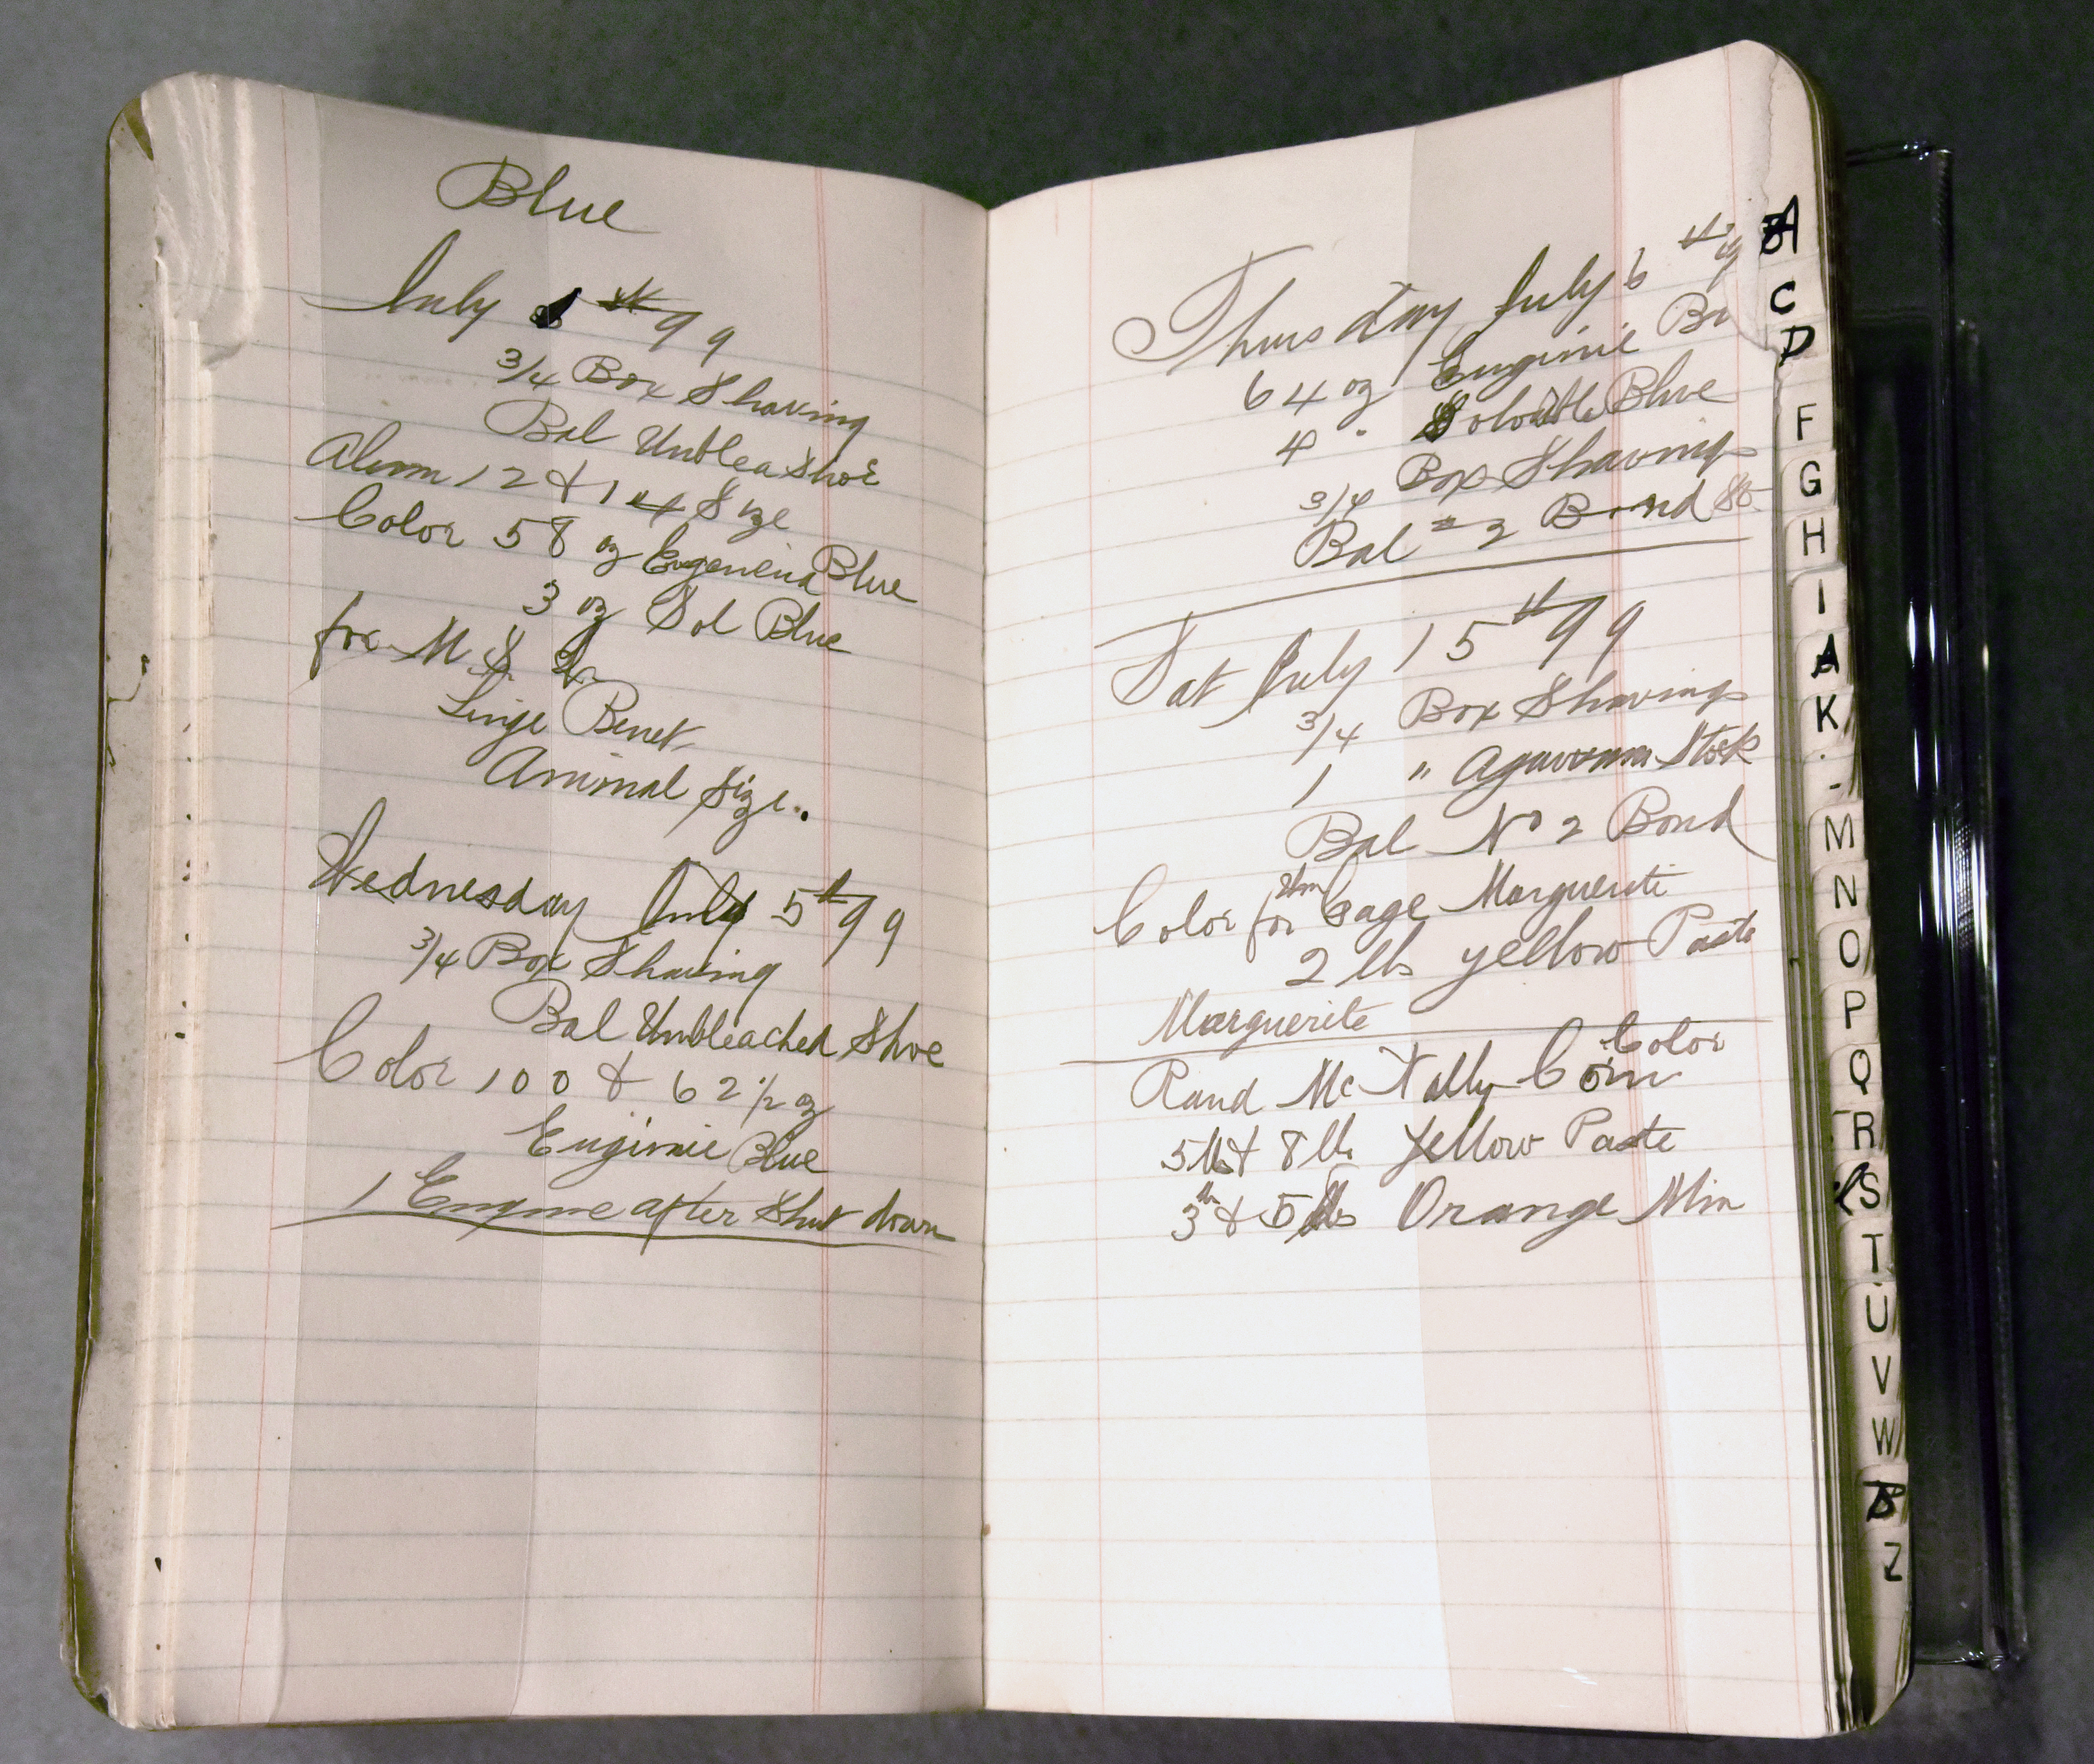 Blue
July 1th 99
3/4 Box Shaving
Bal Unblea Shoe
Alum 12 & 14 Size
Color 58 oz Eugeneia Blue
3 oz Sol Blue
for M &
Linge Benet
Animal Size..
Wednesday July 5th 99
3/4 Box Shaving
Bal Unbleached Shoe
Color 100 & 62 1/2 oz
Euginie Blue
1 Engine after Shut down
Thursday July 6th
64 oz Euginie
4 " Soluble Blue
3/4 Box Shavings
Bal # 2 Bond 80
Sat July 15th 99
3/4 Box Shavings
1 " Agawam Stock
Bal No 2 Bond
Color for Cage Marguerite
2 lbs yellow Paste
Marguerite
Color
Rand McNally Corn
5 lbs & 8 lbs Yellow Paste
3 & 5 lbs Orange Min
A
C
D
F
G
H
I
A
K
M
N
O
P
Q
R
S
T
U
V
W
Z